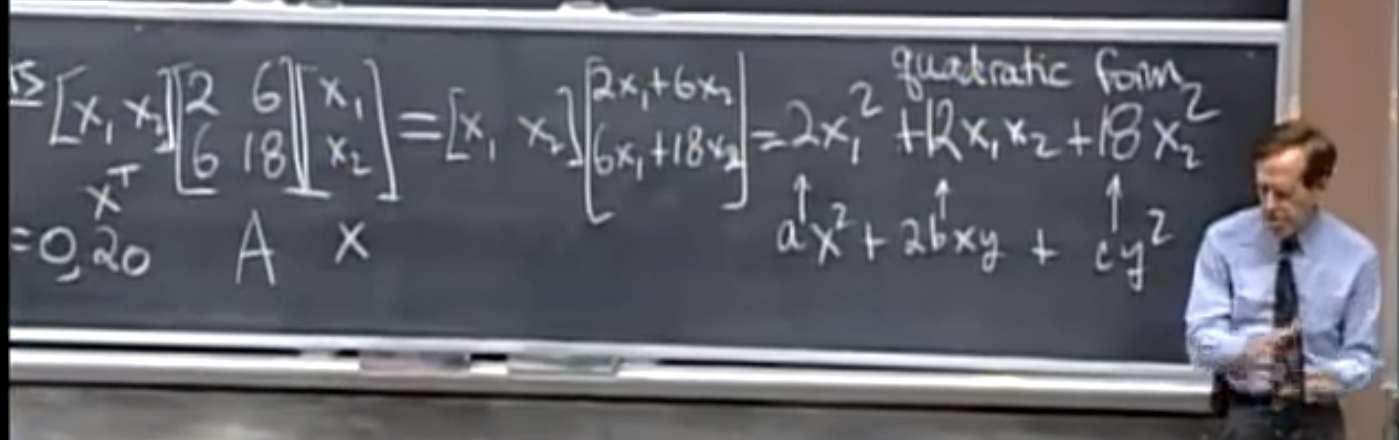 quadratic form
IS [x₁ x₂] [2 6; 6 18] [x₁; x₂] = [x₁ x₂] [2x₁+6x₂; 6x₁+18x₂] = 2x₁² + 12x₁x₂ + 18x₂²
xᵀ A x
ax² + 2bxy + cy²
= 0, 20